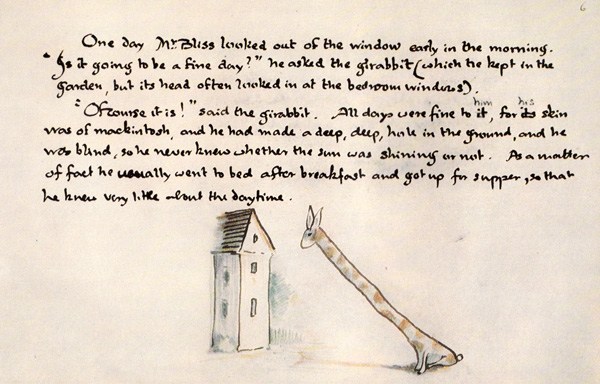 6
One day Mr. Bliss looked out of the window early in the morning.
"Is it going to be a fine day?" he asked the girabbit (which he kept in the
garden, but its head often looked in at the bedroom windows).
him his
"Of course it is!" said the girabbit. All days were fine to it, for its skin
was of mackintosh, and he had made a deep, deep, hole in the ground, and he
was blind, so he never knew whether the sun was shining or not. As a matter
of fact he usually went to bed after breakfast and got up for supper, so that
he knew very little about the daytime.